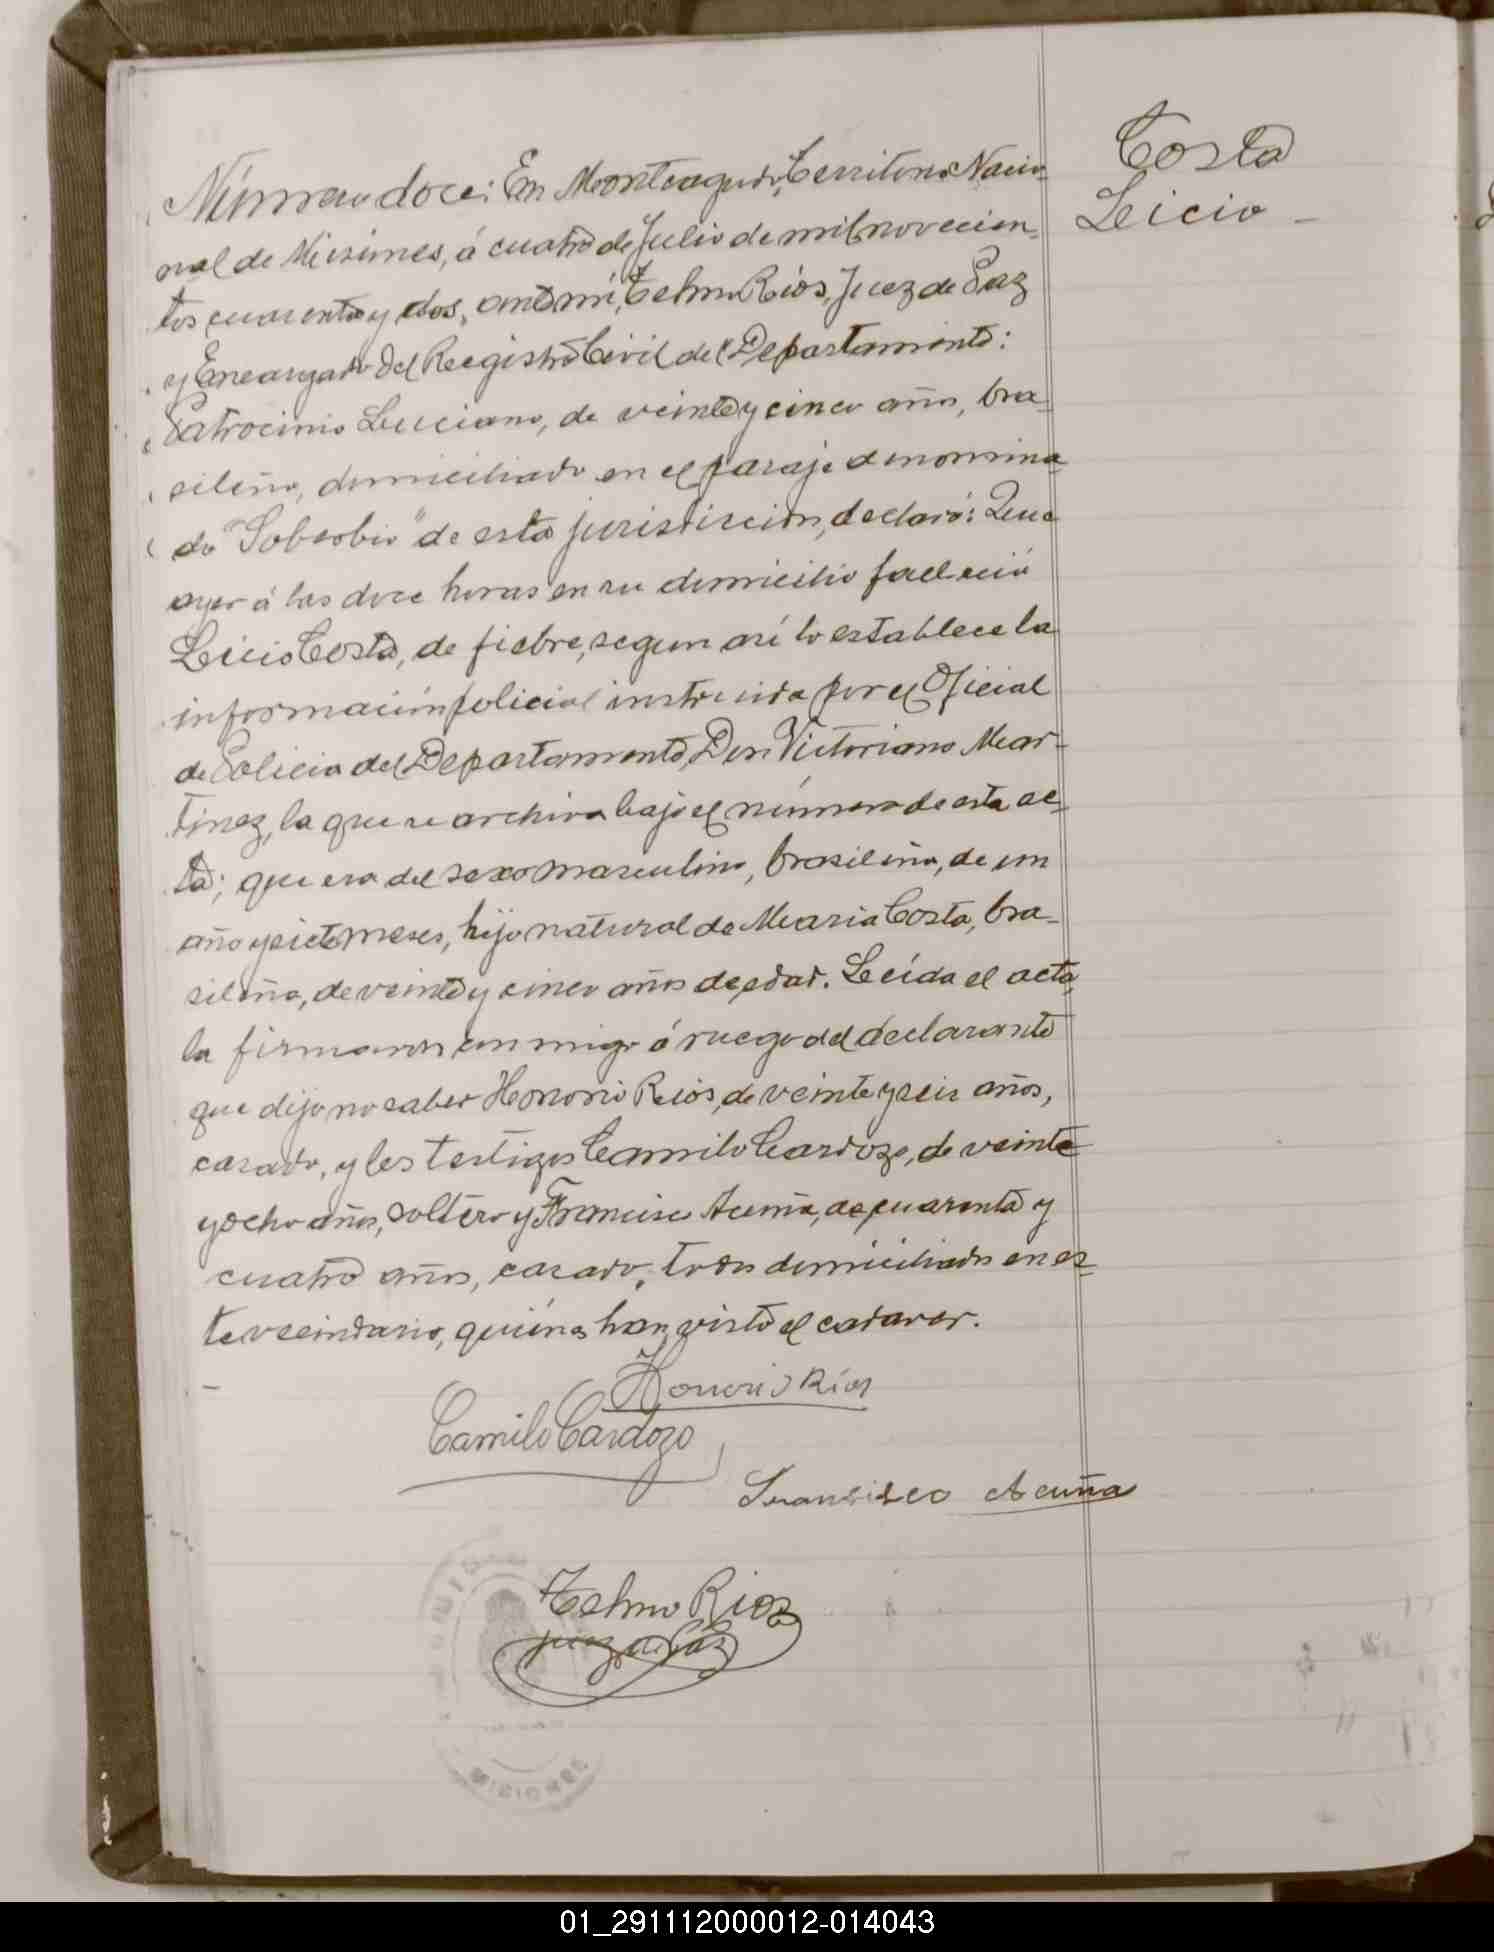 Costa
Leicio -
Número doce: En Monteagudo, Territorio Nacio-
nal de Misiones, á cuatro de Julio de mil novecien-
tos cuarenta y dos, ante mí, Telmo Ríos, Juez de Paz
y Encargado del Registro Civil del Departamento:
Patrocinio Luciano, de veinte y cinco años, bra-
sileño, domiciliado en el paraje denomina-
do "Soberbio" de esta jurisdiccion, declaró: Que
ayer á las doce horas en su domicilio falleció
Leicio Costa, de fiebre, segun asi lo establece la
información policial instruida por el Oficial
de Policia del Departamento, Don Victoriano Mar-
tinez, la que se archiva bajo el número de esta ac-
ta; que era del sexo masculino, brasileño, de un
año y siete meses, hijo natural de Maria Costa, bra-
sileña, de veinte y cinco años de edad. Leída el acta,
la firmaron conmigo á ruego del declarante
que dijo no saber Honorio Rios, de veinte y seis años,
casado, y los testigos Camilo Cardozo, de veinte
y ocho años, soltero y Francisco Acuña, de cuarenta y
cuatro años, casado, todos domiciliados en es-
te vecindario, quiénes han visto el cadaver.
Honorio Ríos
Camilo Cardozo
Francisco Acuña
Telmo Rios
Juez de Paz
MISIONES
01_291112000012-014043